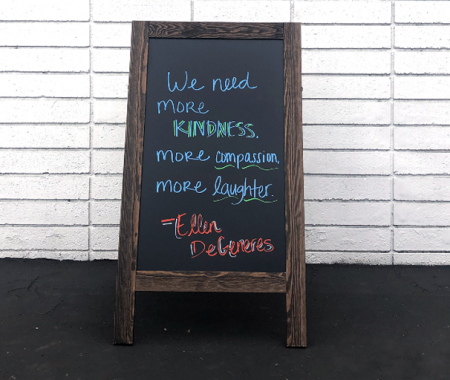 We need
more
KINDNESS.
more compassion,
more laughter.
- Ellen
DeGeneres